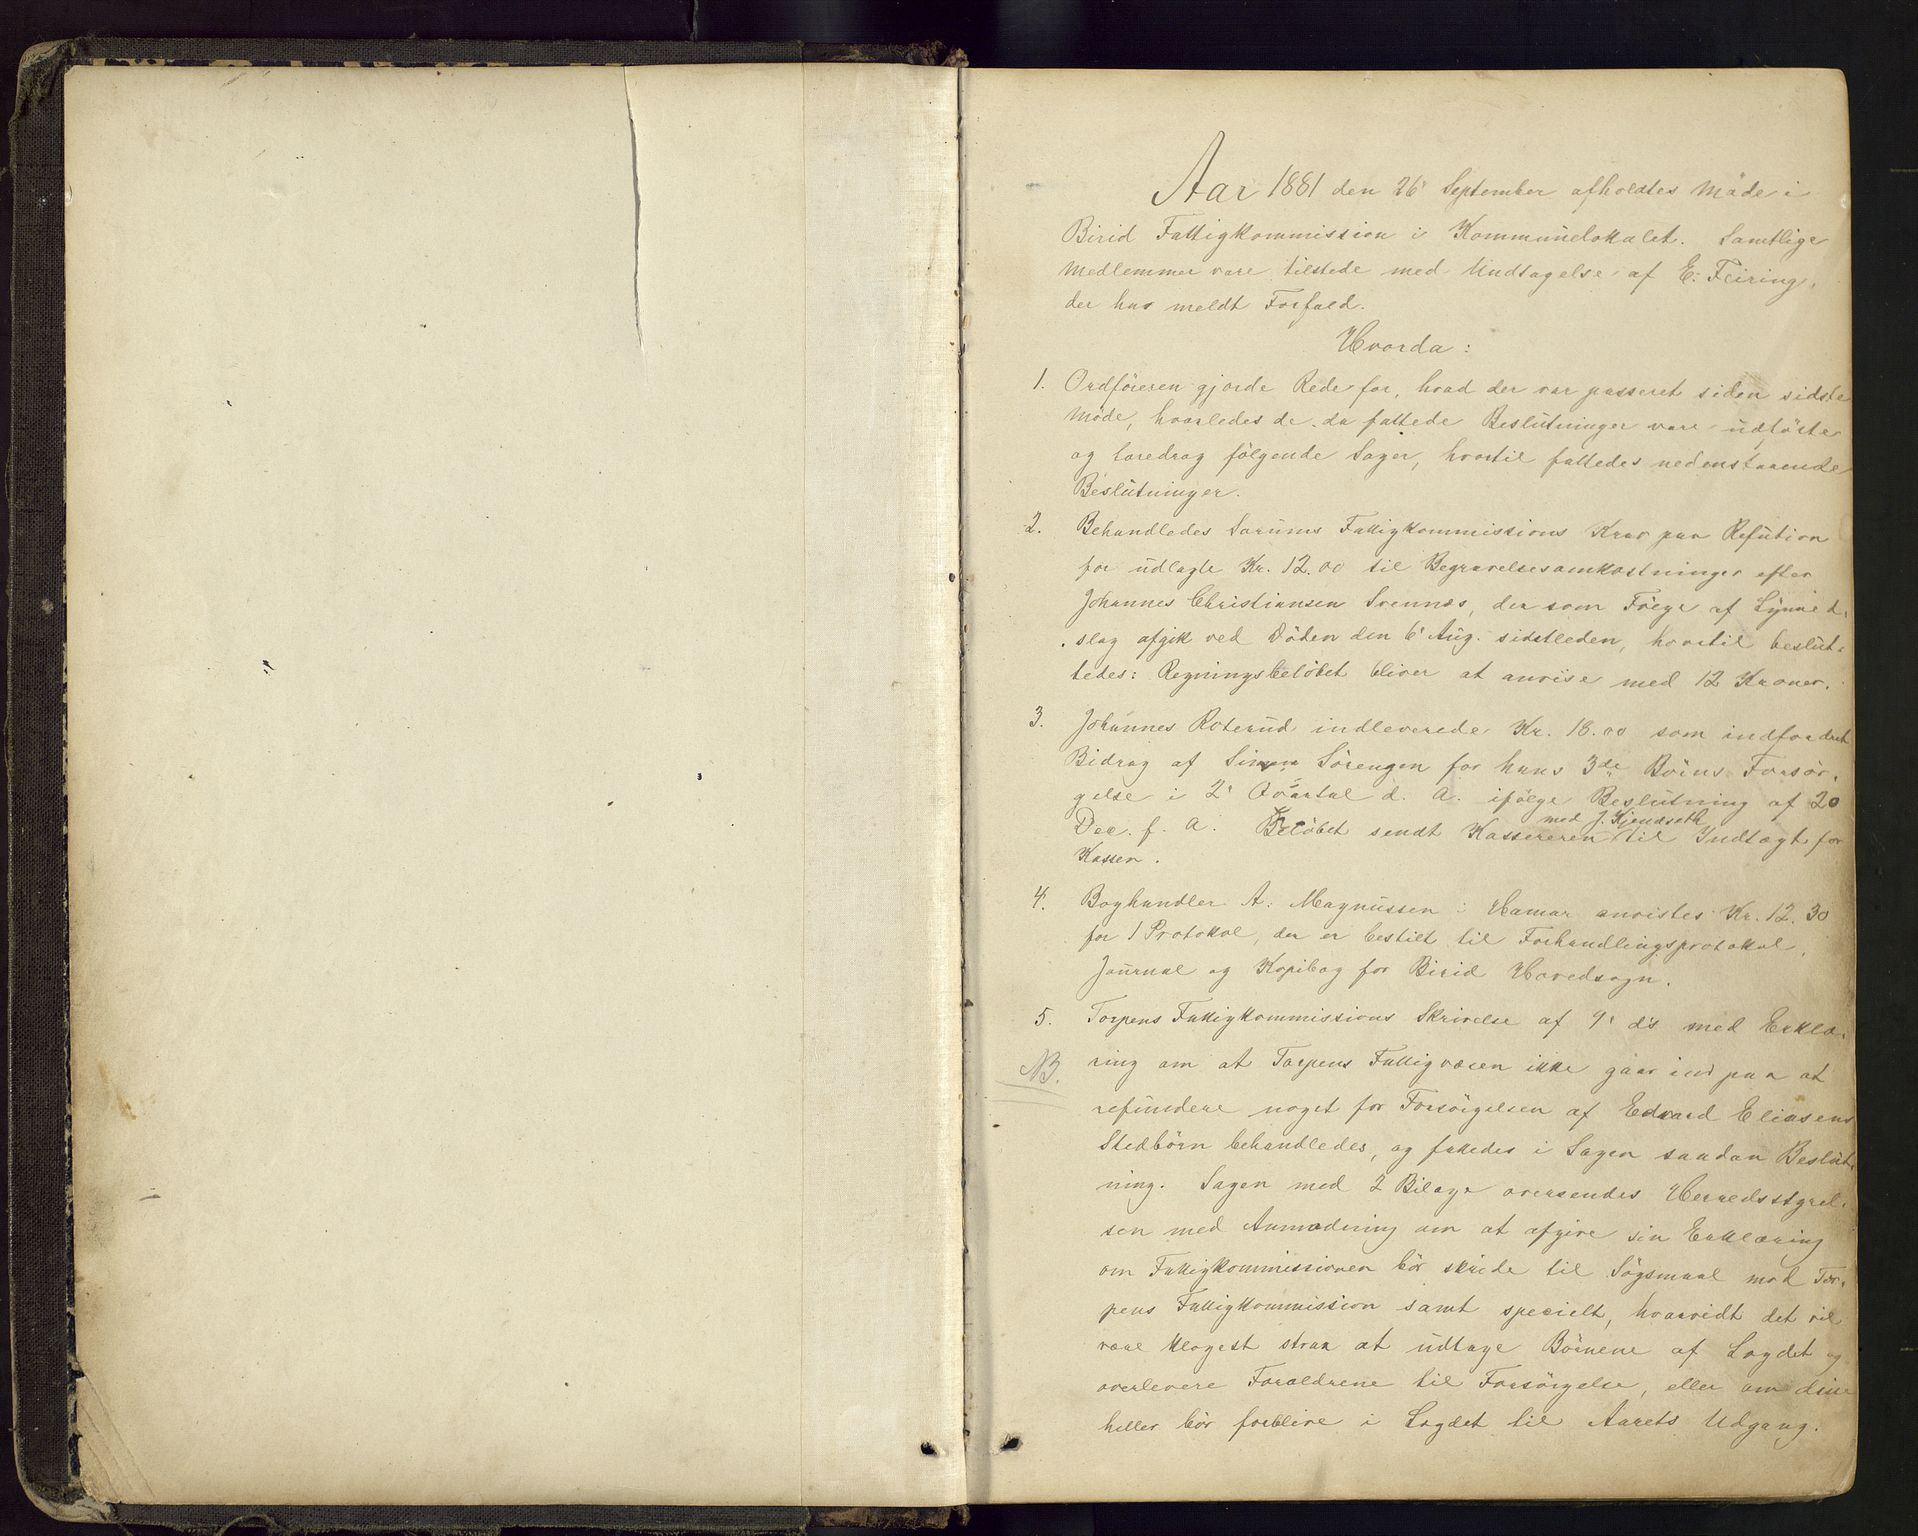 Aar 1881 den 26' September afholdtes Møde i
Birid Fattigkommission i Kommunelokalet. Samtlige
Medlemmer vare tilstede med Undtagelse af E. Feiring,
der har meldt Forfald.
Hvorda:
1. Ordføreren gjorde Rede for, hvad der var passeret siden sidste
Møde, hvorledes de da fattede Beslutninger vare udførte
og foredrog følgende Sager, hvortil fattedes nedenstaaende
Beslutninger.
2. Behandledes Farums Fattigkommissions Krav paa Refution
for udlagte Kr. 12.00 til Begravelsesomkostninger efter
Johannes Christiansen Svennæs, der som Følge af Lynned-
slag afgik ved Døden den 6' Aug. sidstleden, hvortil beslut-
tedes: Regningsbeløbet bliver at anvise med 12 Kroner.
3. Johannes Roterud indleverede Kr. 18.00 som indfordret
Bidrag af Simen Sørengen for hans 3de Børns Forsør-
gelse i 2' Qvartal d. A. ifølge Beslutning af 20
Dec. f. A. Beløbet sendt Kassereren med J. Kjendseth til Indtægt for
Kassen.
4. Boghandler A. Magnussen i Hamar anvistes Kr. 12.30
for 1 Protokol, der er bestilt til Forhandlingsprotokol,
Journal og Kopibog for Birid Hovedsogn.
5. Torpens Fattigkommissions Skrivelse af 9' ds med Erklæ-
NB. ring om at Torpens Fattigvæsen ikke gaar ind paa at
refundere noget for Forsørgelsen af Edvard Eliasens
Stedbørn behandledes, og fattedes i Sagen saadan Beslut-
ning. Sagen med 2 Bilage oversendes Herredsstyrel-
sen med Anmodning om at afgive sin Erklæring
om Fattigkommissionen bør skride til Søgsmaal mod Tor-
pens Fattigkommission samt specielt, hvorvidt det vil
være klogest strax at udtage Børnene af Lægdet og
overlevere Forældrene til Forsørgelse, eller om disse
heller bør forblive i Lægdet til Aarets Udgang.